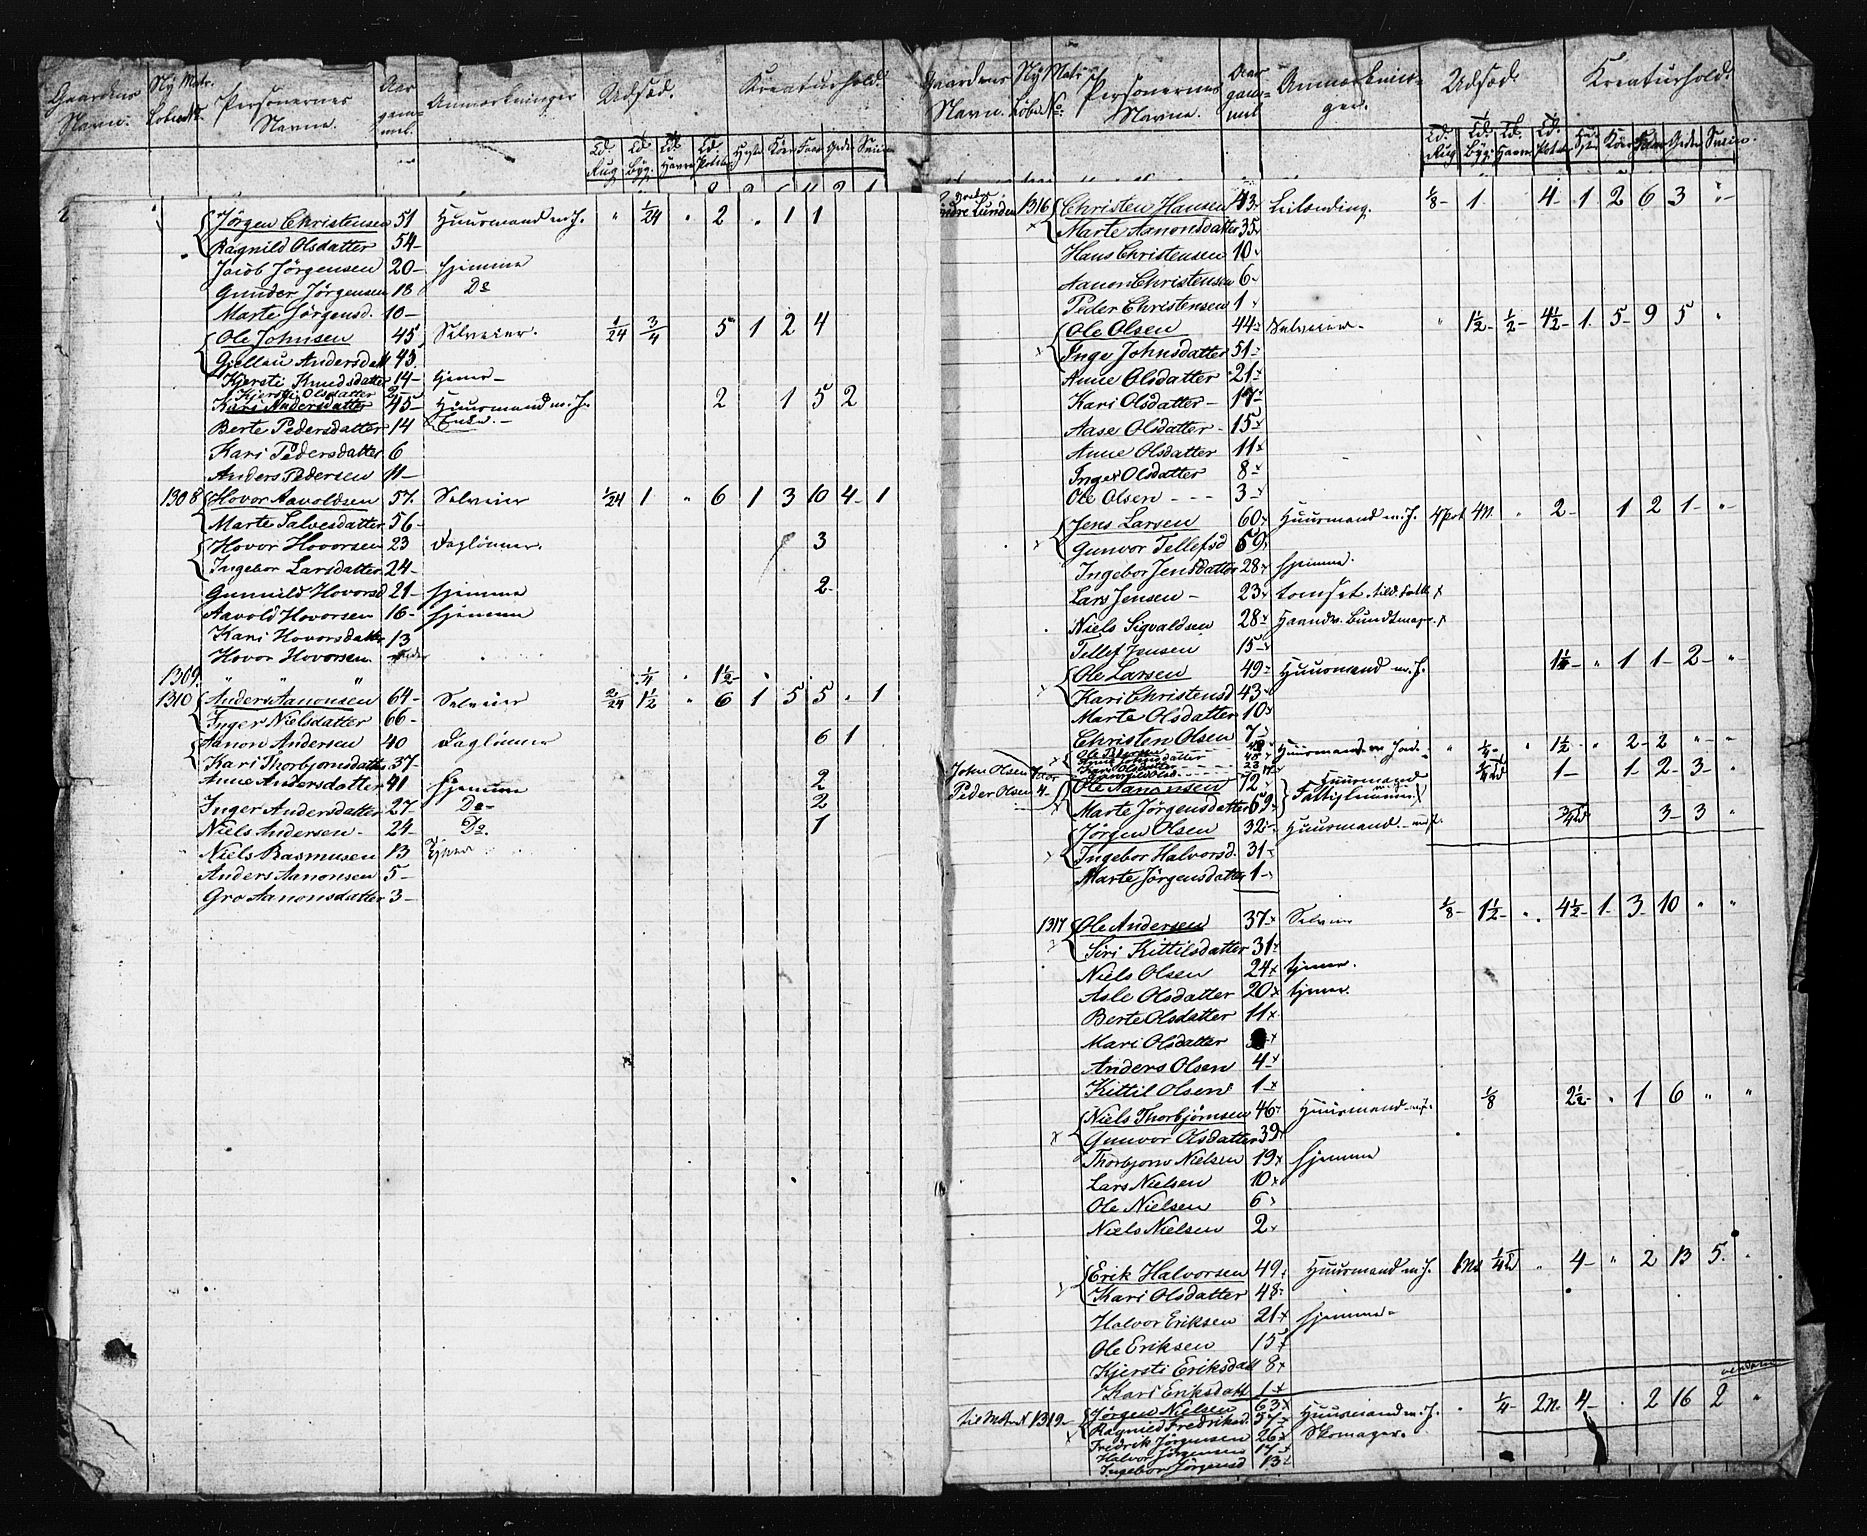 Gaardens Navn. Ny Matr. Löbe No. Personernes Navne. Aar gammel. Anmærkninger Udsæd. Kreaturhold.
Td. Rug Td. Byg Td. Havre Td. Potetes Heste Köer Faar Geder Sviin
Jørgen Christensen 51 Huusmand m. J. " 1/24 " 2 " 1 1
Ragnild Olsdatter 54
Jacob Jørgensen 20 hjemme
Gunder Jørgensen 18 Do
Marte Jørgensd. 10
Ole Johnsen 45 Selveier. 1/24 3/4 5 1 2 4
Andersdatt 43
Kjersti Knudsdatter 14 tjener
Kjersti Olsdatter 2
Kari Andersdatter 45 Huusmand m. J. Enke. 2 1 5 2
Berte Pedersdatter 14
Kari Pedersdatter 6
Anders Pedersen 11
1308 Hovor Aavoldsen 57 Selveier 1/24 1 " 6 1 3 10 4 1
Marte Salvesdatter 56
Hovor Hovorsen 23 Daglönner. 3
Ingebor Larsdatter 24
Gunnild Hovorsd 21 hjemme 2
Aavold Hovorsen 16 hjemme
Kari Hovorsdatter 13
Hovor Hovorsen
1309 " " " 1/4 " 1½
1310 Anders Aanonsen 64 Selveier 2/24 1½ " 6 1 5 5 " 1
Inger Nielsdatter 66
Aanon Andersen 40 Daglönner 6 1
Kari Thorbjornsdatter 37
Anne Andersdatter 41 hjemme 2
Inger Andersdatter 27 Do 2
Niels Andersen 24 Do 1
Niels Rasmusen 13 Tjener
Anders Aanonsen 5
Gro Aanonsdatter 3
Gaardens Navn. Ny Matr. Löbe No. Personernes Navne. Aar gammel Anmærkninger. Udsæd. Kreaturhold.
Td. Rug Td. Byg Td. Havre Td. Potetes Heste Köer Faar Geder Sviin.
Lunden 1316 Christen Hansen 43 Leilending. 1/8 1 4 1 2 6 3 "
Marte Aanonsdatter 35
Hans Christensen 10
Aanon Christensen 6
Peder Christensen 1
Ole Olsen 44 Selveier " 1½ ½ 4½ 1 5 9 5 "
Inge Johnsdatter 51
Anne Olsdatter 21
Kari Olsdatter 17
Aase Olsdatter 15
Anne Olsdatter 11
Inger Olsdatter 8
Ole Olsen 3
Jens Larsen 60 Huusmand m. J. 4 Pot 4 M. " 2 1 2 1 "
Gunvor Tellefsd 59
Ingebor Jensdatter 28 hjemme.
Lars Jensen 23
Niels Sigvaldsen 28 Haandv. Bundtmager
Tellef Jensen 15
Ole Larsen 49 Huusmand m. J. 1½ " 1 1 2 "
Kari Christensd 43
Marte Olsdatter 10
Christen Olsen 7
Huusmand m Jord " 1/4 1½ " 2 2 " "
John Olsen
Peder Olsen 4
Ole Aanonsen 72 Huusmand Fattiglemmer 1 1 2 3 "
Marte Jørgensdatter 69
Jørgen Olsen 32 Huusmand 3/4 Td 3 3 "
Ingebor Halvorsd. 31
Marte Jørgensdatter 1
1317 Ole Andersen 37 Selveier 1/8 1½ " 4½ 1 3 10 " "
Siri Kittilsdatter 31
Niels Olsen 24 tjener.
Asle Olsdatter 20 tjener.
Berte Olsdatter 11
Mari Olsdatter
Anders Olsen 4
Kittil Olsen 1
Niels Thorbjørnsen 46 Huusmand m. J. 1/8 2½ " 1 6 " "
Gunvor Olsdatter 39
Thorbjorn Nielsen 19 hjemme
Lars Nielsen 10
Ole Nielsen 6
Niels Nielsen 2
Erik Halvorsen 49 Huusmand m. J. 1/4 Td " 4 " 2 13 5 "
Kari Olsdatter 48
Halvor Eriksen 21 hjemme
Ole Eriksen 15
Kjersti Eriksdatt 8
Kari Eriksdatt. 1
til Mtr N 1319 Jørgen Nielsen 63 Huusmand m. J. Skomager. " 1/4 2 M. 4 " 2 16 2 "
Ragnild Fredriksd 57
Fredrik Jørgensen 26
Halvor Jørgensen 17
Ingebor Jørgensd 13